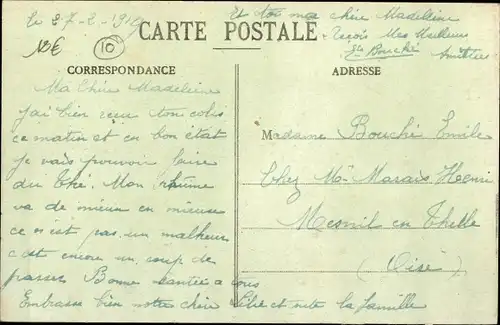 le 27-2-1919
Et toi ma chère Madeleine
CARTE POSTALE
reçois mes meilleurs
12€
10
Bouché
CORRESPONDANCE
ADRESSE
Ma Chère Madeleine
j'ai bien reçu ton colis
ce matin et en bon état
je vais pouvoir faire
du thé. Mon rhume
va de mieux en mieux
ce n'est pas un malheur
c'est encore un coup de
passer Bonne santée a tous
Embrasse bien notre chère et toute la famille
Madame Bouché Emile
Chez Mr Marais Henri
Mesnil en Thelle
(Oise)